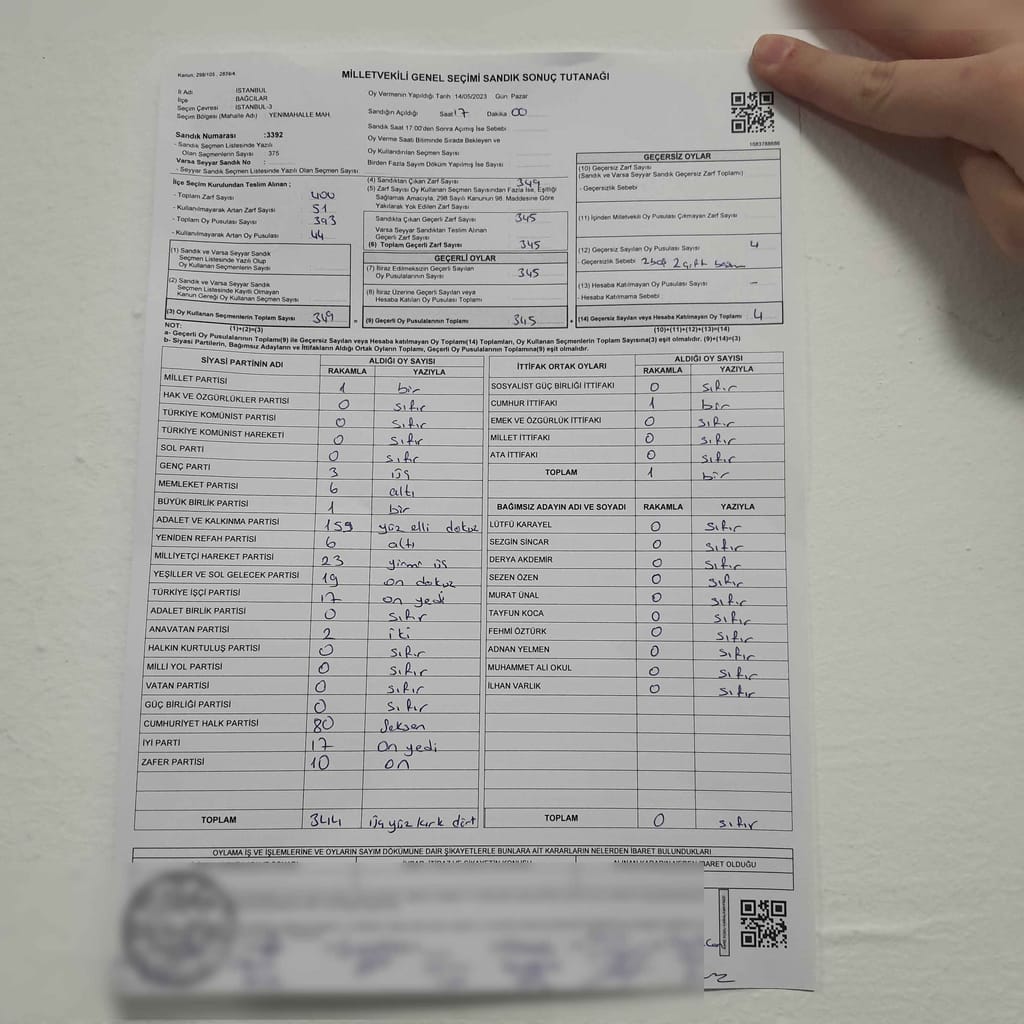 Kanun: 298/105 , 2839/4
MİLLETVEKİLİ GENEL SEÇİMİ SANDIK SONUÇ TUTANAĞI
İl Adı İSTANBUL
İlçe BAĞCILAR
Seçim Çevresi İSTANBUL-3
Seçim Bölgesi (Mahalle Adı) YENİMAHALLE MAH.
Oy Vermenin Yapıldığı Tarih 14/05/2023 Gün Pazar
Sandığın Açıldığı Saat 17 Dakika 00
Sandık Saat 17.00'den Sonra Açımış İse Sebebi
Oy Verme Saati Bitiminde Sırada Bekleyen ve
Oy Kullandırılan Seçmen Sayısı
Birden Fazla Sayım Döküm Yapılmış İse Sayısı
1583788686
Sandık Numarası :3392
- Sandık Seçmen Listesinde Yazılı
Olan Seçmenlerin Sayısı 375
Varsa Seyyar Sandık No :
- Seyyar Sandık Seçmen Listesinde Yazılı Olan Seçmen Sayısı
İlçe Seçim Kurulundan Teslim Alınan ;
- Toplam Zarf Sayısı 400
- Kullanılmayarak Artan Zarf Sayısı 51
- Toplam Oy Pusulası Sayısı 393
- Kullanılmayarak Artan Oy Pusulası 44
(1) Sandık ve Varsa Seyyar Sandık
Seçmen Listesinde Yazılı Olup
Oy Kullanan Seçmenlerin Sayısı
(2) Sandık ve Varsa Seyyar Sandık
Seçmen Listesinde Kayıtlı Olmayan
Kanun Gereği Oy Kullanan Seçmen Sayısı
(3) Oy Kullanan Seçmenlerin Toplam Sayısı 349
(1)+(2)=(3)
(4) Sandıktan Çıkan Zarf Sayısı 349
(5) Zarf Sayısı Oy Kullanan Seçmen Sayısından Fazla İse, Eşitliği
Sağlamak Amacıyla; 298 Sayılı Kanunun 98. Maddesine Göre
Yakılarak Yok Edilen Zarf Sayısı
Sandıkta Çıkan Geçerli Zarf Sayısı 345
Varsa Seyyar Sandıktan Teslim Alınan
Geçerli Zarf Sayısı
(6) Toplam Geçerli Zarf Sayısı 345
GEÇERLİ OYLAR
(7) İtiraz Edilmeksizin Geçerli Sayılan
Oy Pusulalarının Sayısı 345
(8) İtiraz Üzerine Geçerli Sayılan veya
Hesaba Katılan Oy Pusulası Toplamı
= (9) Geçerli Oy Pusulalarının Toplamı 345
GEÇERSİZ OYLAR
(10) Geçersiz Zarf Sayısı
(Sandık ve Varsa Seyyar Sandık Geçersiz Zarf Toplamı)
- Geçersizlik Sebebi
(11) İçinden Milletvekili Oy Pusulası Çıkmayan Zarf Sayısı
(12) Geçersiz Sayılan Oy Pusulası Sayısı 4
- Geçersizlik Sebebi 2 boş 2 çift basım
(13) Hesaba Katılmayan Oy Pusulası Sayısı -
- Hesaba Katılmama Sebebi
+ (14) Geçersiz Sayılan veya Hesaba Katılmayan Oy Toplamı 4
(10)+(11)+(12)+(13)=(14)
NOT:
a- Geçerli Oy Pusulalarının Toplamı(9) ile Geçersiz Sayılan veya Hesaba Katılmayan Oy Toplamı(14) Toplamları, Oy Kullanan Seçmenlerin Toplam Sayısına(3) eşit olmalıdır. (9)+(14)=(3)
b- Siyasi Partilerin, Bağımsız Adayların ve İttifakların Aldığı Ortak Oyların Toplamı, Geçerli Oy Pusulalarının Toplamına(9) eşit olmalıdır.
SİYASİ PARTİNİN ADI ALDIĞI OY SAYISI
RAKAMLA YAZIYLA
MİLLET PARTİSİ 1 bir
HAK VE ÖZGÜRLÜKLER PARTİSİ 0 sıfır
TÜRKİYE KOMÜNİST PARTİSİ 0 sıfır
TÜRKİYE KOMÜNİST HAREKETİ 0 sıfır
SOL PARTİ 0 sıfır
GENÇ PARTİ 3 üç
MEMLEKET PARTİSİ 6 altı
BÜYÜK BİRLİK PARTİSİ 1 bir
ADALET VE KALKINMA PARTİSİ 159 yüz elli dokuz
YENİDEN REFAH PARTİSİ 6 altı
MİLLİYETÇİ HAREKET PARTİSİ 23 yirmi üç
YEŞİLLER VE SOL GELECEK PARTİSİ 19 on dokuz
TÜRKİYE İŞÇİ PARTİSİ 17 on yedi
ADALET BİRLİK PARTİSİ 0 sıfır
ANAVATAN PARTİSİ 2 iki
HALKIN KURTULUŞ PARTİSİ 0 sıfır
MİLLİ YOL PARTİSİ 0 sıfır
VATAN PARTİSİ 0 sıfır
GÜÇ BİRLİĞİ PARTİSİ 0 sıfır
CUMHURİYET HALK PARTİSİ 80 Seksen
İYİ PARTİ 17 on yedi
ZAFER PARTİSİ 10 on
TOPLAM 344 üç yüz kırk dört
İTTİFAK ORTAK OYLARI ALDIĞI OY SAYISI
RAKAMLA YAZIYLA
SOSYALİST GÜÇ BİRLİĞİ İTTİFAKI 0 sıfır
CUMHUR İTTİFAKI 1 bir
EMEK VE ÖZGÜRLÜK İTTİFAKI 0 sıfır
MİLLET İTTİFAKI 0 sıfır
ATA İTTİFAKI 0 sıfır
TOPLAM 1 bir
BAĞIMSIZ ADAYIN ADI VE SOYADI RAKAMLA YAZIYLA
LÜTFÜ KARAYEL 0 sıfır
SEZGİN SİNCAR 0 sıfır
DERYA AKDEMİR 0 sıfır
SEZEN ÖZEN 0 sıfır
MURAT ÜNAL 0 sıfır
TAYFUN KOCA 0 sıfır
FEHMİ ÖZTÜRK 0 sıfır
ADNAN YELMEN 0 sıfır
MUHAMMET ALİ OKUL 0 sıfır
İLHAN VARLIK 0 sıfır
TOPLAM 0 sıfır
OYLAMA İŞ VE İŞLEMLERİNE VE OYLARIN SAYIM DÖKÜMÜNE DAİR ŞİKAYETLERLE BUNLARA AİT KARARLARIN NELERDEN İBARET BULUNDUKLARI
ALINAN KARARIN NEDEN İBARET OLDUĞU